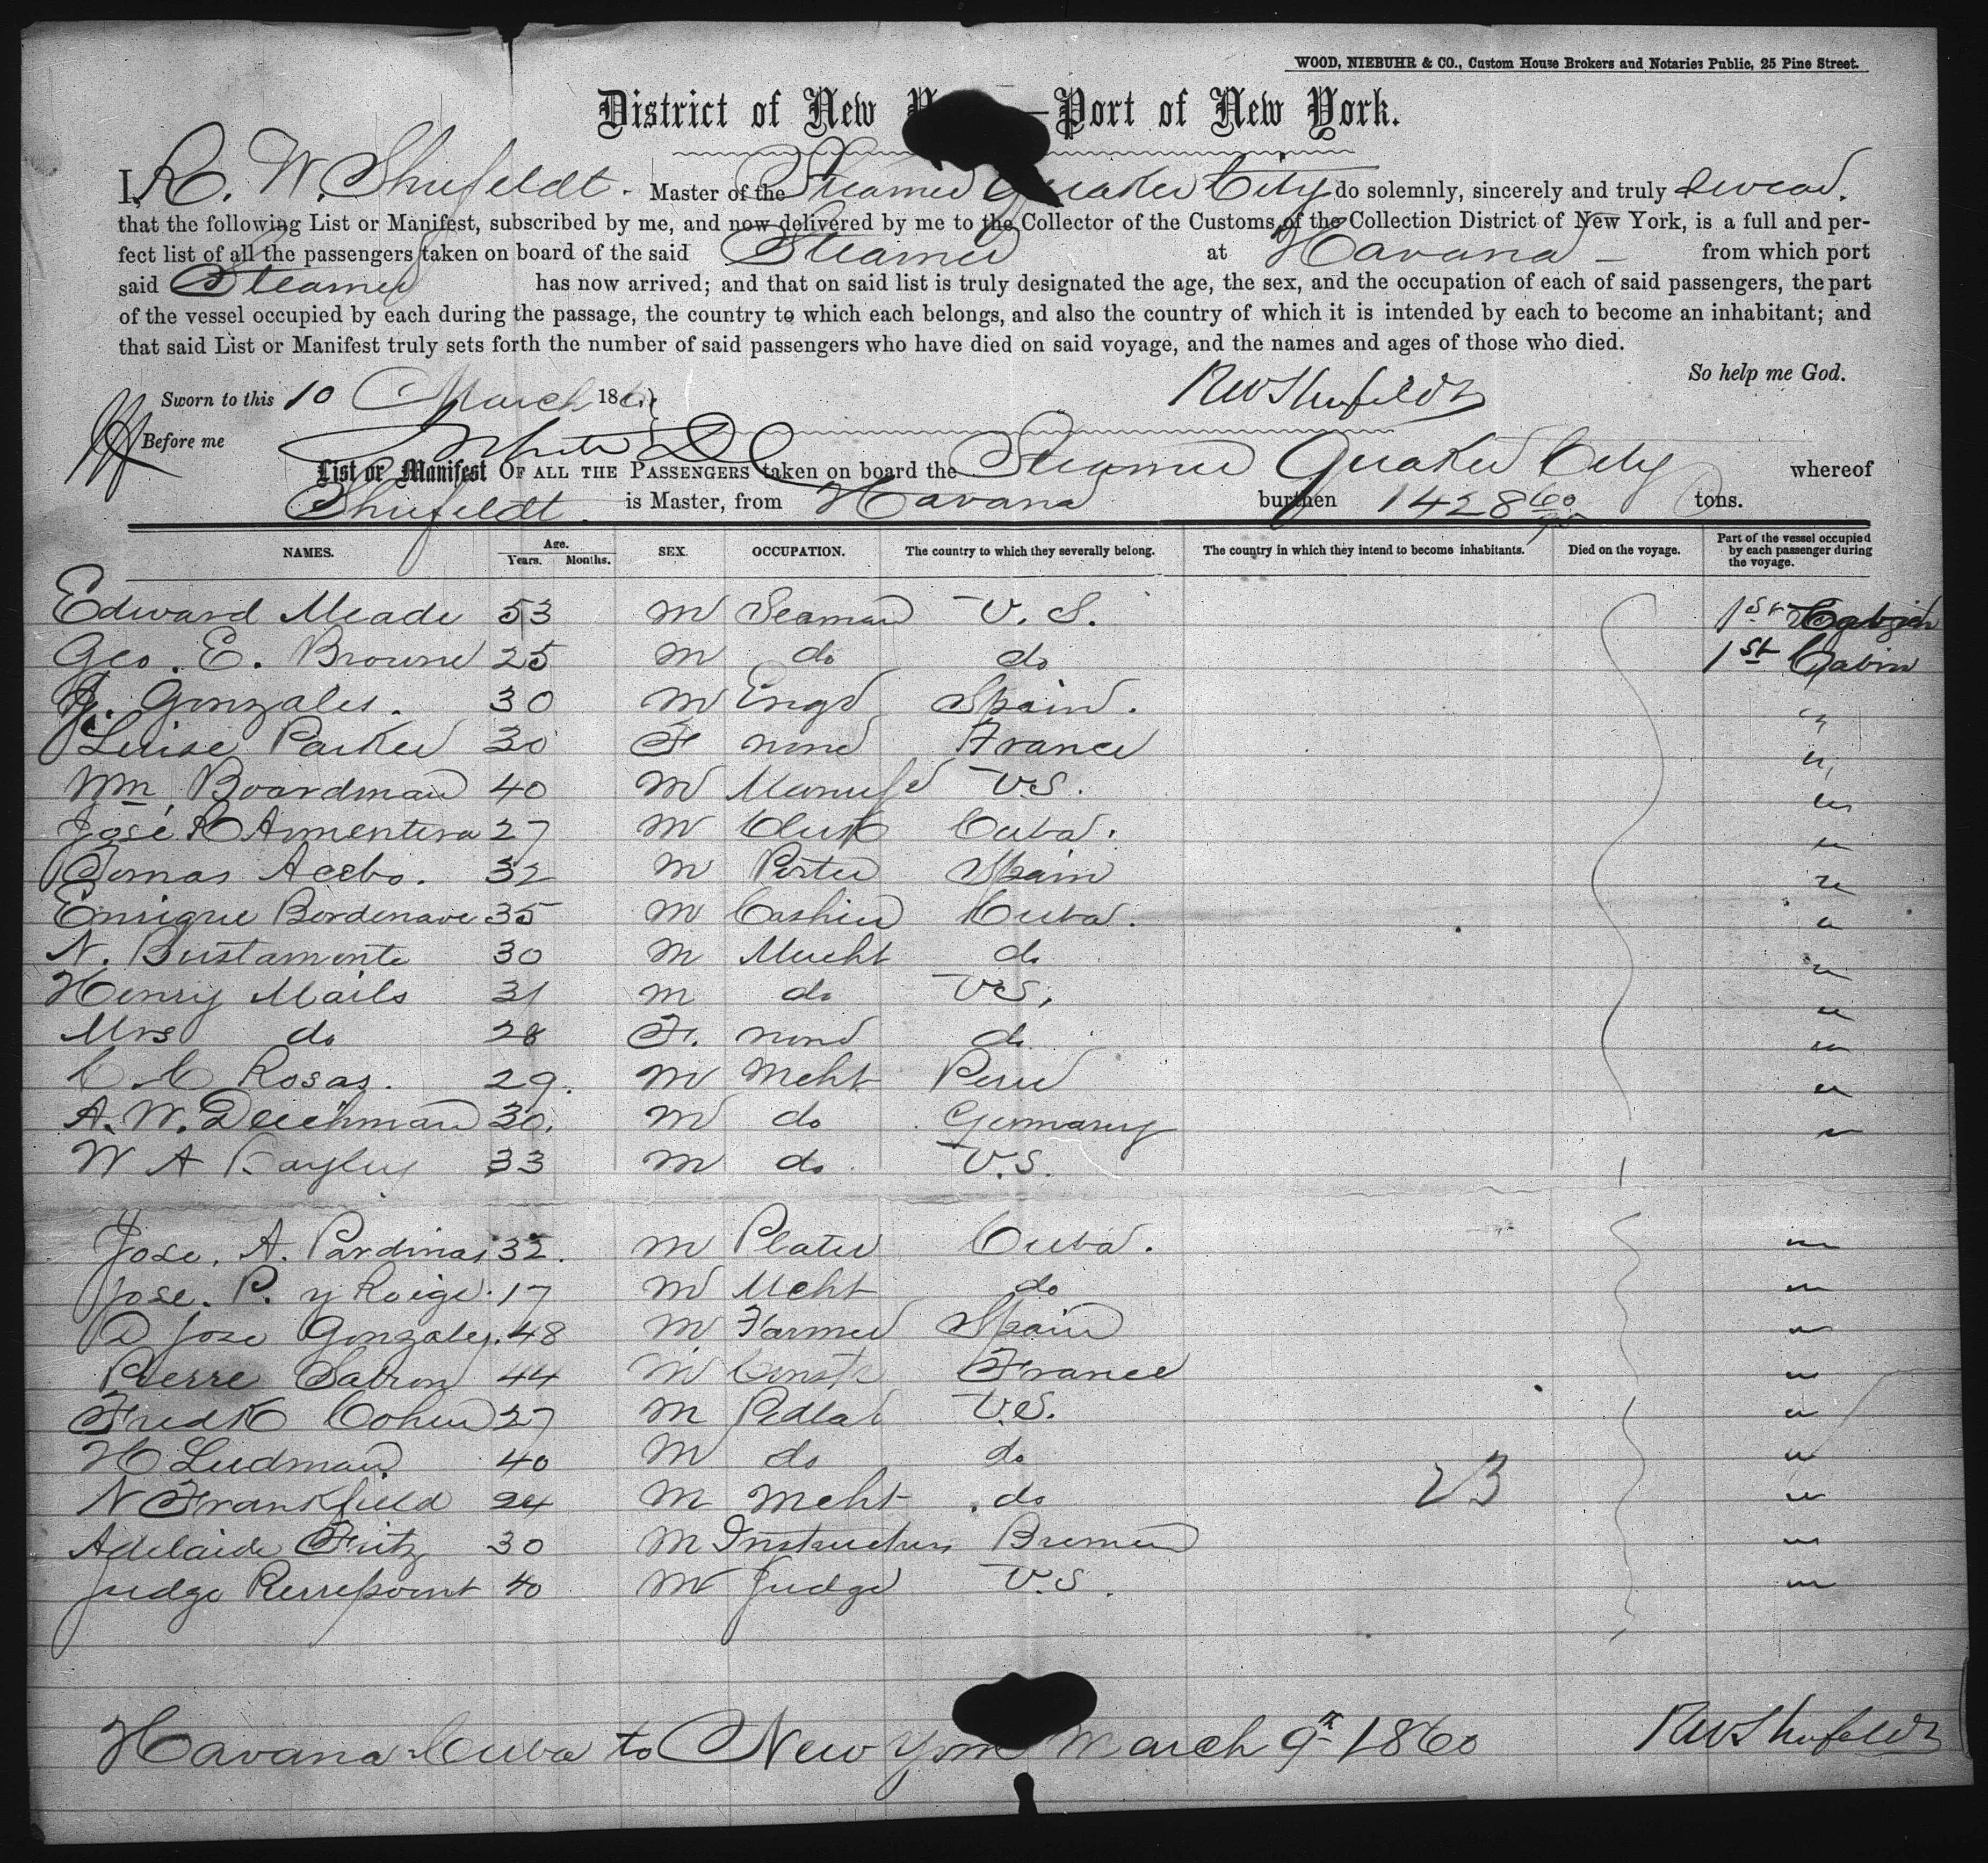 WOOD, NIEBUHR & CO., Custom House Brokers and Notaries Public, 25 Pine Street.
District of New — Port of New York.
I, R. W. Shufeldt. Master of the Steamer Quaker City do solemnly, sincerely and truly swear.
that the following List or Manifest, subscribed by me, and now delivered by me to the Collector of the Customs of the Collection District of New York, is a full and per-
fect list of all the passengers taken on board of the said Steamer at Havana - from which port
said Steamer has now arrived; and that on said list is truly designated the age, the sex, and the occupation of each of said passengers, the part
of the vessel occupied by each during the passage, the country to which each belongs, and also the country of which it is intended by each to become an inhabitant; and
that said List or Manifest truly sets forth the number of said passengers who have died on said voyage, and the names and ages of those who died.
So help me God.
Sworn to this 10 March 186 RWShufeldt
Before me
List or Manifest OF ALL THE PASSENGERS taken on board the Steamer Quaker City whereof
Shufeldt. is Master, from Havana burthen 1428 60/95 tons.
NAMES. Age. Years. Months. SEX. OCCUPATION. The country to which they severally belong. The country in which they intend to become inhabitants. Died on the voyage. Part of the vessel occupied by each passenger during the voyage.
Edward Meade 53 M Seaman U.S. 1st Cabin
Geo. E. Brown 25 M do do 1st Cabin
J. Gonzales. 30 M Engr Spain. "
Luise Parker 30 F none France "
Wm Boardman 40 M Manufr US. "
José R Armentera 27 M Clerk Cuba. "
Tomas Acebo. 32 M Porter Spain "
Enrique Bordenave 35 M Cashier Cuba. "
N. Bustamente 30 M Mercht do "
Henry Mails 31 M do US. "
Mrs do 28 F. none do "
C. C Rosas. 29. M Mcht Peru "
A. W. Deichman 30. M do Germany "
W A Bayley 33 M do U.S.
Jose. A. Pardinas 32. M Plater Cuba. "
Jose. P. y Roige. 17 M Mcht do "
D Jose Gonzales. 48 M Farmer Spain "
Pierre Sabron 44 M France "
Fredk Cohen 27 M Pedlar U.S. "
H Ludman 40 M do do "
N Frankfield 24 M Mcht. do "
Adelaide Fritz 30 M Instructress Bremen "
Judge Pierrepoint 40 M Judge U.S. "
23
Havana Cuba to New York March 9th 1860 RWShufeldt